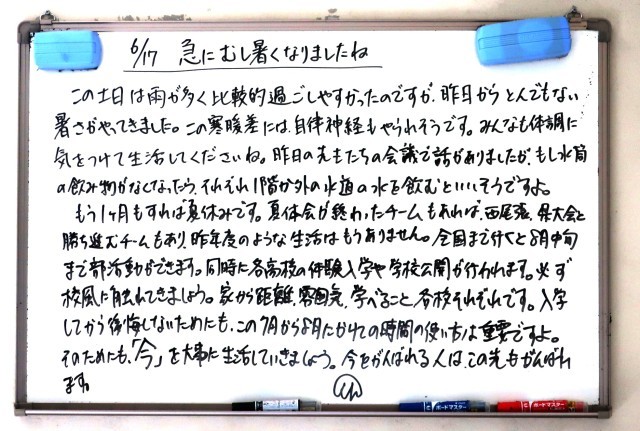 6/17 急にむし暑くなりましたね
この土日は雨が多く比較的過ごしやすかったのですが、昨日からとんでもない
暑さがやってきました。この寒暖差には、自律神経もやられそうです。みんなも体調に
気をつけて生活してくださいね。昨日の先生たちの会議で話がありましたが、もし水筒
の飲み物がなくなったら、それぞれ1階か外の水道の水を飲むといいそうですよ。
もう1ヶ月もすれば夏休みです。夏体会が終わったチームもあれば、西尾張、県大会と
勝ち進むチームもあり、昨年度のような生活はもうありません。全国まで行くと8月中旬
まで部活動ができます。同時に各高校の体験入学や学校公開が行われます。必ず
校風に触れてきましょう。家から距離、雰囲気、学べること、各校それぞれです。入学
してから後悔しないためにも、この7月から8月にかけての時間の使い方は重要ですよ。
そのためにも、「今」を大事に生活していきましょう。今をがんばれる人は、この先もがんばれ
ます。
ボードマスター
ボードマスター